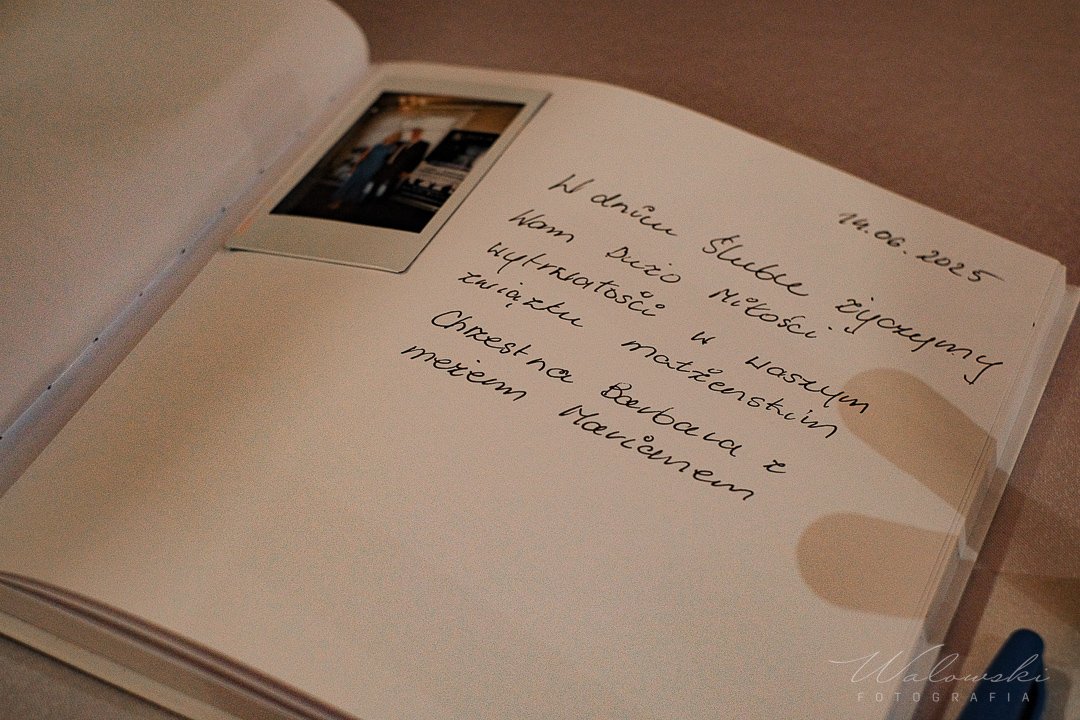 14.06.2025
W dniu Ślubu życzymy
Wam Dużo Miłości i
wytrwałości w waszym
związku małżenskim
Chrzestna Barbara z
mężem Marianem
Walowski
FOTOGRAFIA